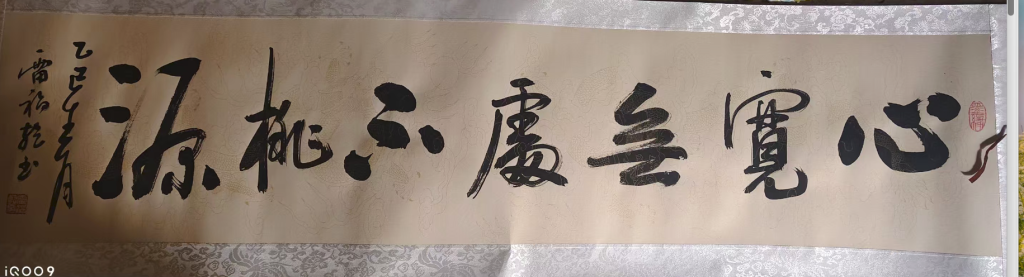 心寬無處不桃源
乙巳年五月
雷福
書
iQOO9